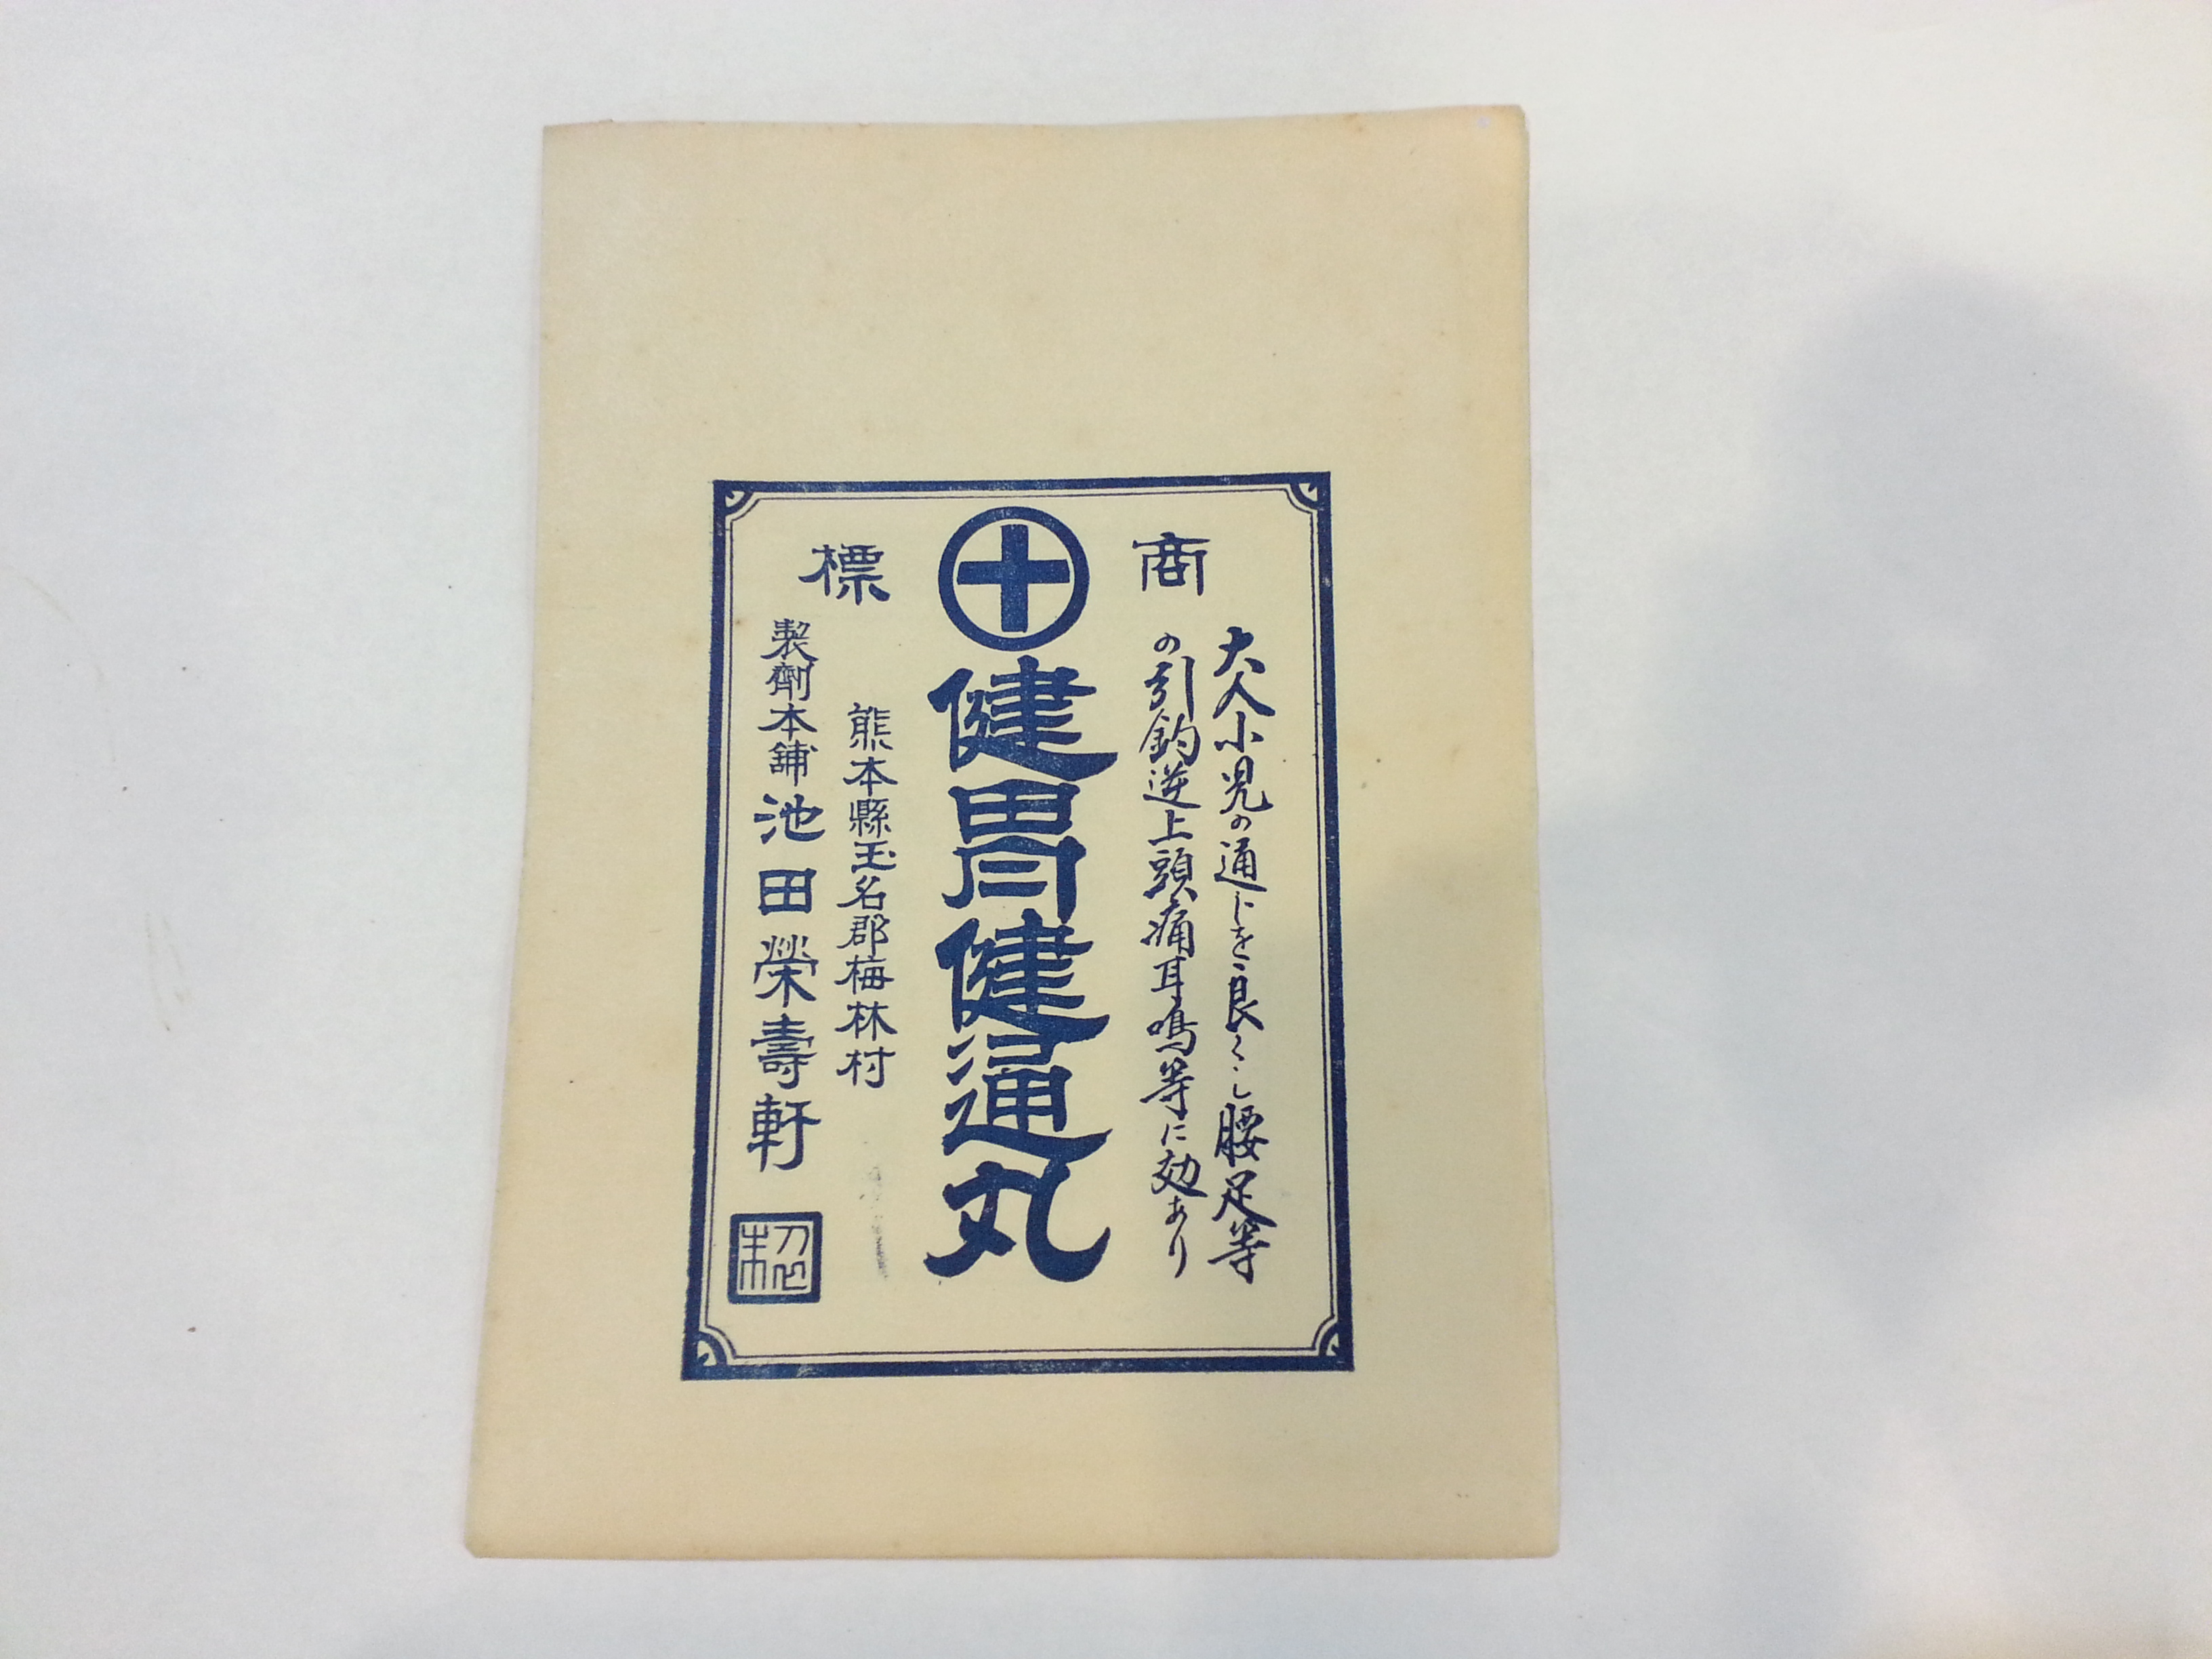 商標
大人小児の通じを良くし腰足等
の引釣逆上頭痛耳鳴等に効あり
健胃健通丸
熊本縣玉名郡梅林村
製劑本舗池田榮壽軒